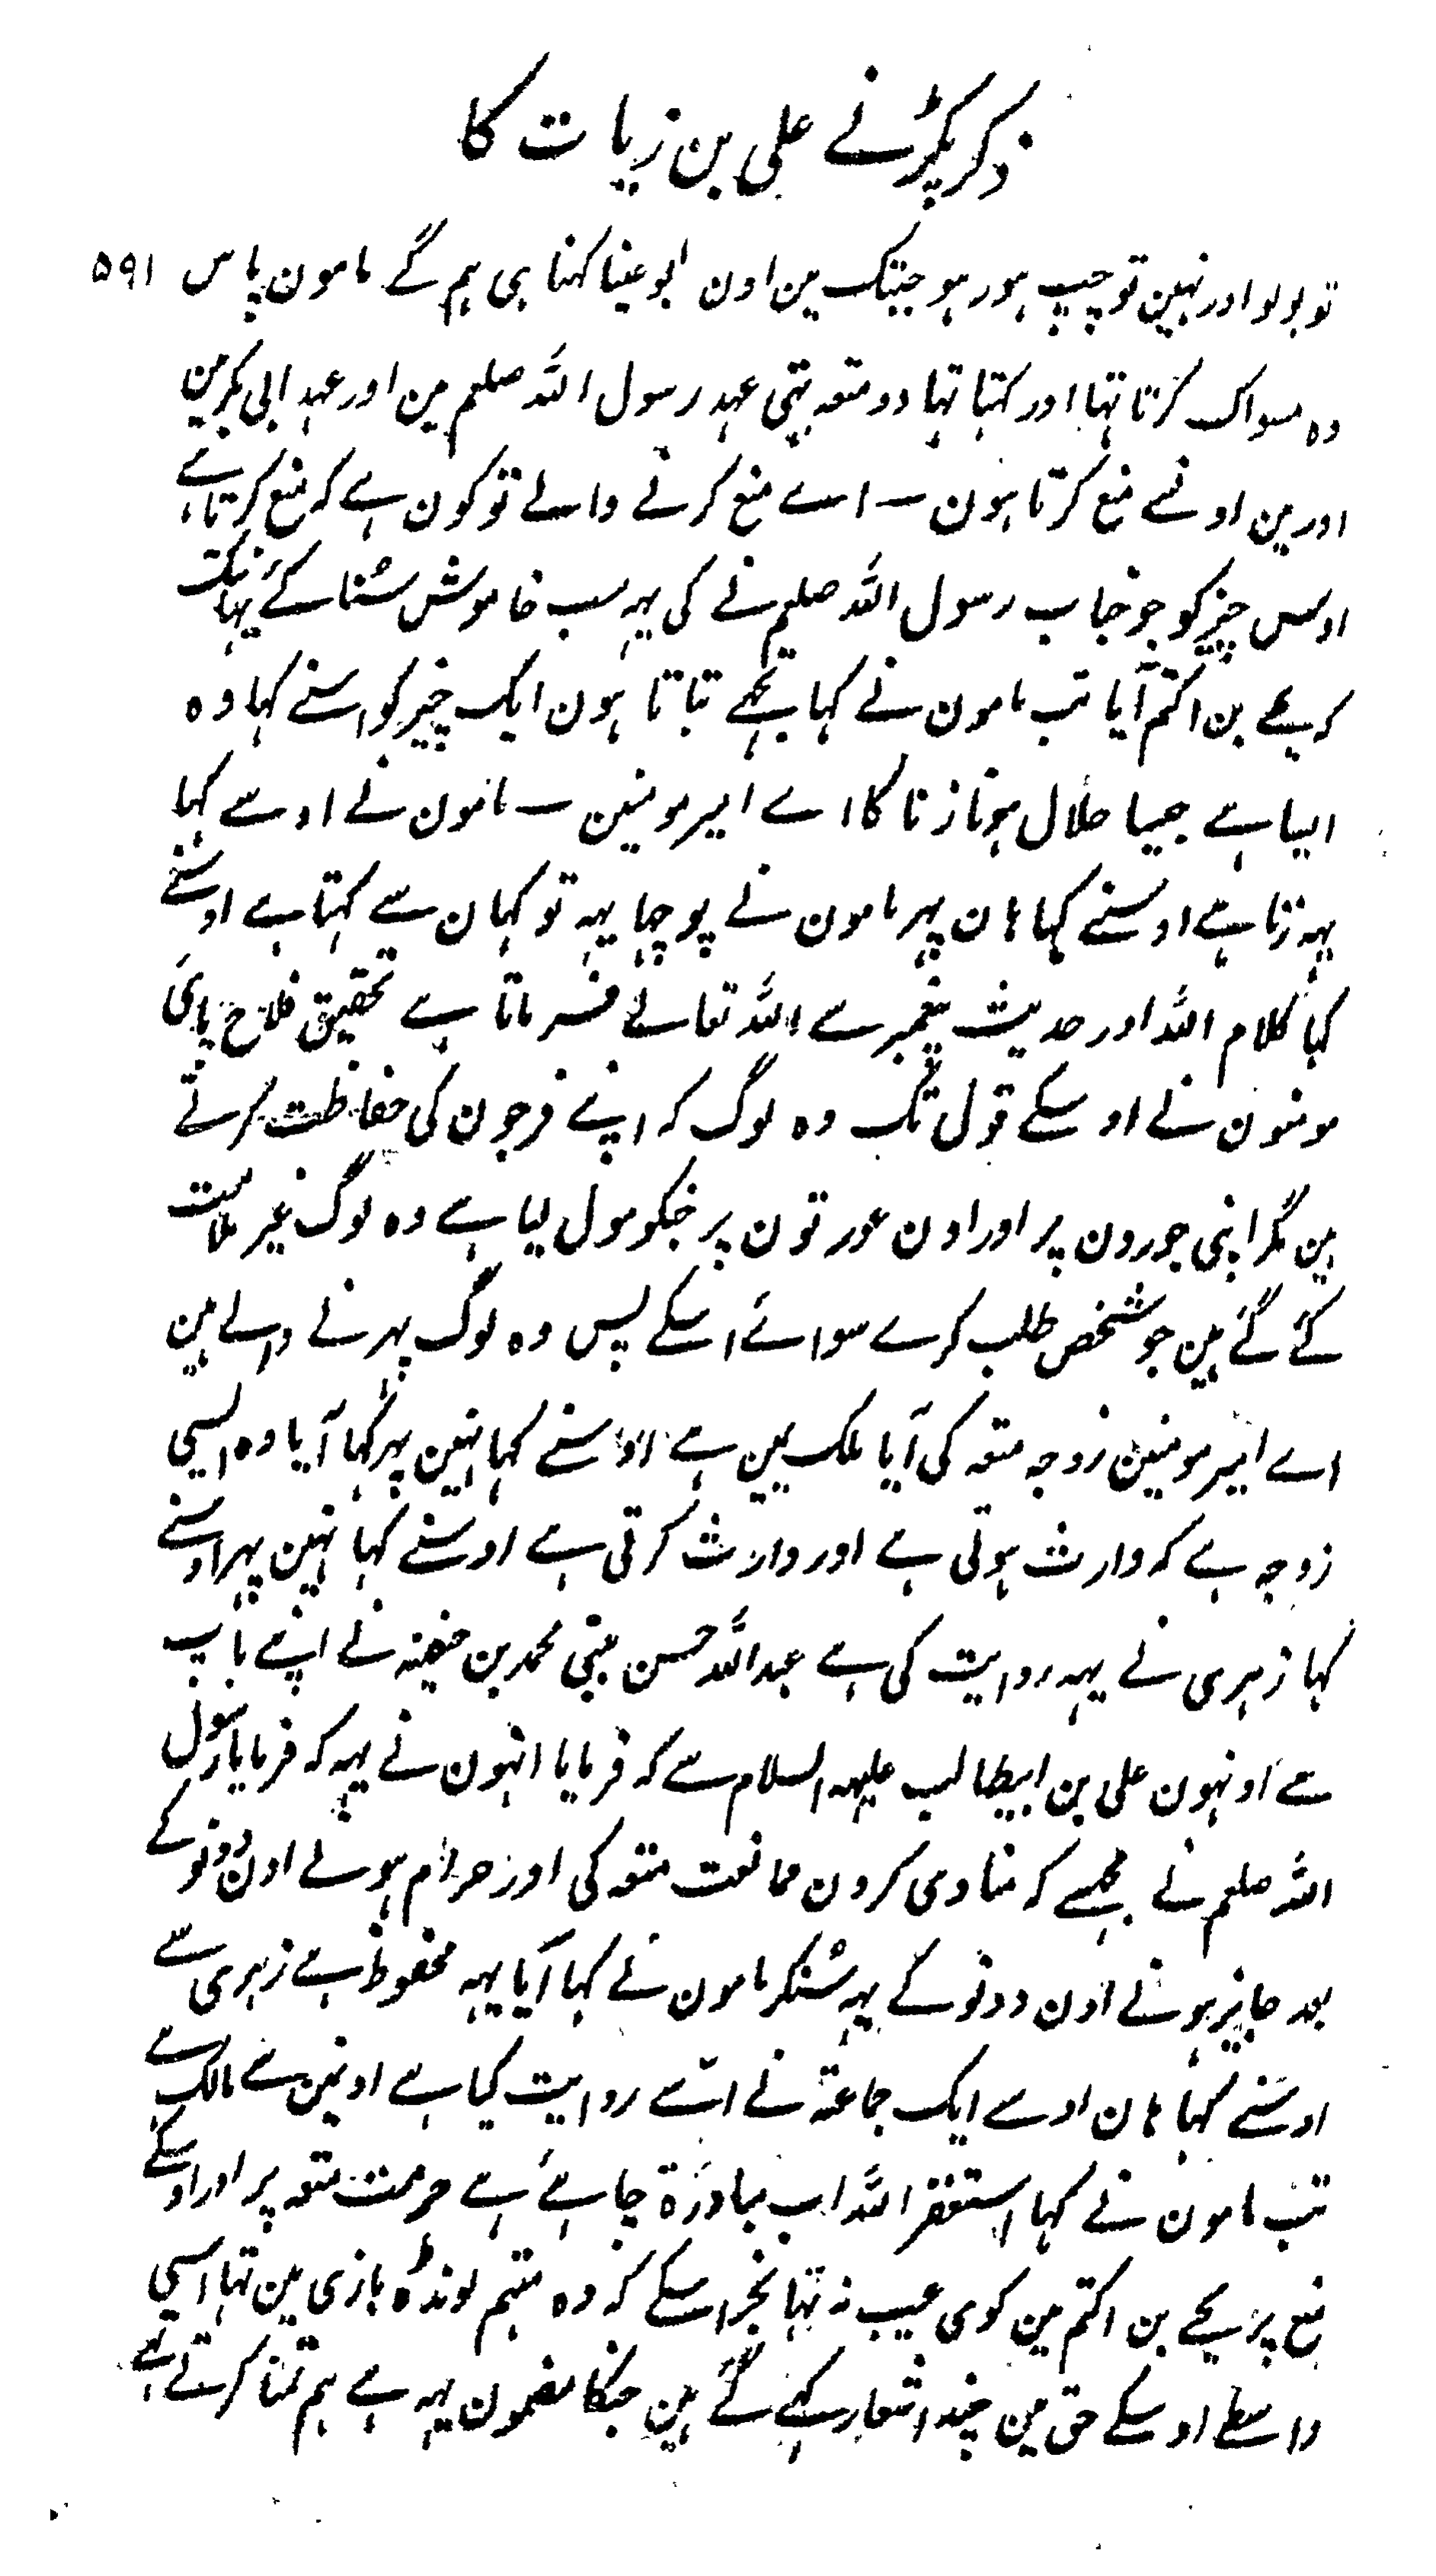 ذکر پکڑنے علی بن زیات کا
تو بولو اور نہین تو چپ ہو رہو جبتک مین اون ابو عینا کہتا ہی ہم گے مامون پاس ۵۹۱
وہ مسواک کرتا تہا اور کہتا تہا دو متعہ تہی عہد رسول اللہ صلعم مین اور عہد ابی بکر مین
اور مین اونسے منع کرتا ہون — اے منع کرنے والے تو کون ہے کہ منع کرتا ہے
اوس چیز کو جو جناب رسول اللہ صلعم نے کی یہہ سب خاموش سنا کئے یہانتک
کہ یحے بن اکثم آیا تب مامون نے کہا تجھے بتاتا ہون ایک چیز کو اسنے کہا وہ
ایسا ہے جیسا حلال ہونا زنا کا اے امیر مومنین — مامون نے اوسے کہا
یہہ زنا ہے اوسنے کہا ہان پہر مامون نے پوچہا یہہ تو کہان سے کہتا ہے اوسنے
کہا کلام اللہ اور حدیث پیغمبر سے اللہ تعالے فرماتا ہے تحقیق فلاح پائی
مومنون نے اوسکے قول تک وہ لوگ کہ اپنے فرجون کی حفاظت کرتے
ہین مگر اپنی جورون پر اور اون عورتون پر جنکو مول لیا ہے وہ لوگ غیر ملامت
کئے گئے ہین جو شخص طلب کرے سوائے اسکے پس وہ لوگ پہرنے والے ہین
اے امیر مومنین زوجہ متعہ کی آیا ملک یمین ہے اوسنے کہا نہین پہر کہا آیا وہ ایسی
زوجہ ہے کہ وارث ہوتی ہے اور وارث کرتی ہے اوسنے کہا نہین پہر اوسنے
کہا زہری نے یہہ روایت کی ہے عبد اللہ حسن بیٹی محمد بن حنیفہ نے اپنے باپ
سے اونہون علی بن ابیطالب علیہ السلام سے کہ فرمایا انہون نے یہہ کہ فرمایا رسول
اللہ صلعم نے مجھسے کہ منادی کرون ممانعت متعہ کی اور حرام ہونے اون دونو کے
بعد جایز ہونے اون دونو کے یہہ سنکر مامون نے کہا آیا یہہ محفوظ ہے زہری سے
اوسنے کہا ہان اوسے ایک جماعۃ نے اسے روایت کیا ہے اونمین سے مالک ہے
تب مامون نے کہا استغفر اللہ اب مبادرۃ چاہئے ہے حرمت متعہ پر اور اوسکے
منع پر یحے بن اکثم مین کوی عیب نہ تہا بجز اسکے کہ وہ متہم لونڈہ بازی مین تہا اسی
واسطے اوسکے حق مین چند اشعار کہے گئے ہین جنکا مضمون یہہ ہے ہم تمنا کرتے تہے